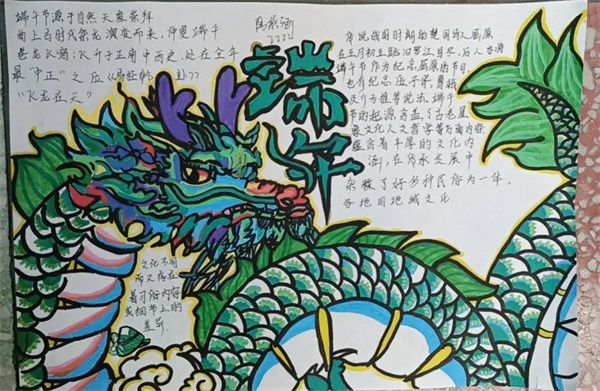 端午节源于自然天象崇拜
由上古时代祭龙演变而来,仲夏端午
苍龙七宿,飞升于正南中央,处在全年
最"中正"之位
"飞龙在天"
2022
端午
传说战国时期的楚国诗人屈原
在五月初五跳汨罗江自尽,后人亦将
端午节作为纪念屈原的节日,
也有纪念伍子胥、曹娥
及介子推等说法,端午
节的起源,涵盖了古老星
象文化人文哲学等方面内容
蕴含着丰厚的文化内
涵,在传承发展中
杂糅了好多种民俗为一体,
各地因地域文化
文化不同
而又存在
着习俗内容
或细节上的
差异